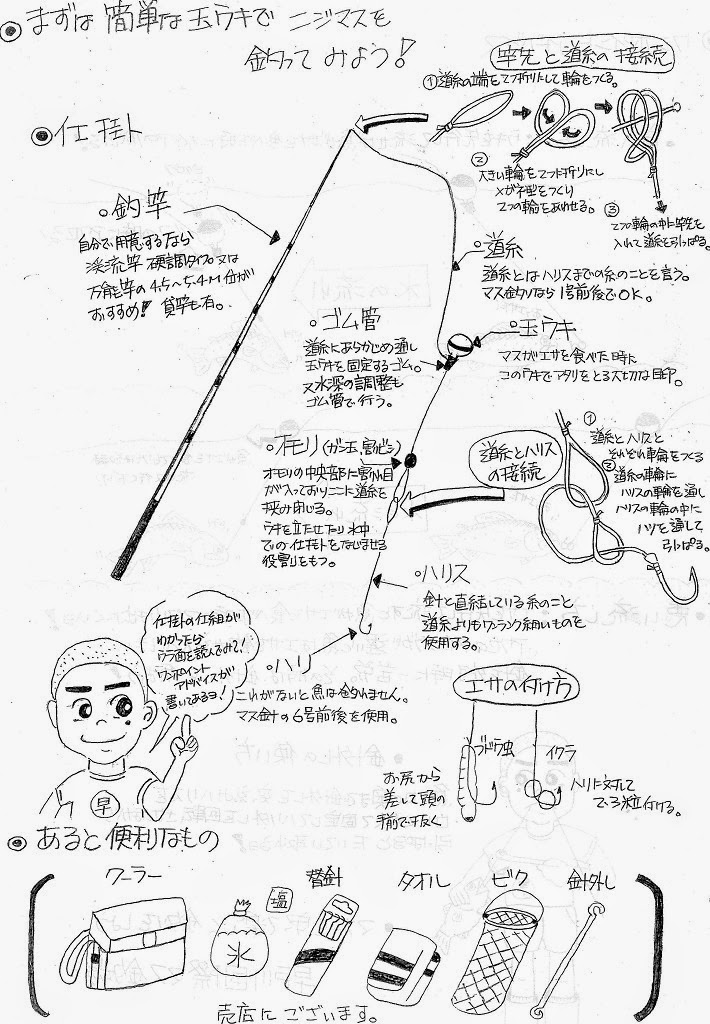 まずは簡単な玉ウキでニジマスを
釣ってみよう!
竿先と道糸の接続
①道糸の端を二つ折りにして輪をつくる。
②
大きい輪を二つ折りにし
メガネ型をつくり
2つの輪をあわせる。
③
2つの輪の中に竿先を
入れて道糸を引っぱる。
仕掛ト
釣竿
自分で用意するなら
渓流竿 硬調タイプ 又は
万能竿の4.5～5.4M位が
おすすめ! 貸竿も有。
道糸
道糸とはハリスまでの糸のことを言う。
マス釣りなら1号前後でOK。
ゴム管
道糸にあらかじめ通し
玉ウキを固定するゴム。
又水深の調整も
ゴム管で行う。
玉ウキ
マスがエサを食べた時に
このウキでアタリをとる大切な目印。
オモリ(ガン玉、割ビシ)
オモリの中央部に割れ目
が入っておりここに道糸を
挟み閉じる。
ウキを立たせたり水中
での仕掛トをなじませる
役割りをもつ。
道糸とハリス
の接続
①
道糸とハリスと
それぞれ輪をつくる
②
道糸の輪に
ハリスの輪を通し
ハリスの輪の中に
ハリを通して
引っぱる。
ハリス
針と直結している糸のこと
道糸よりもワンランク細いものを
使用する。
ハリ
これがないと魚は釣れません。
マス針の6号前後を使用。
仕掛トの仕組が
わかったら
ウラ面を読んでみて!
ワンポイント
アドバイスが
書いてあるヨ!
早
エサの付け方
ブドウ虫
イクラ
お尻から
差して頭の
手前で抜く
ハリに対して
2～3粒付ける。
あると便利なもの
クーラー
氷
塩
替針
タオル
ビク
針外し
売店にございます。